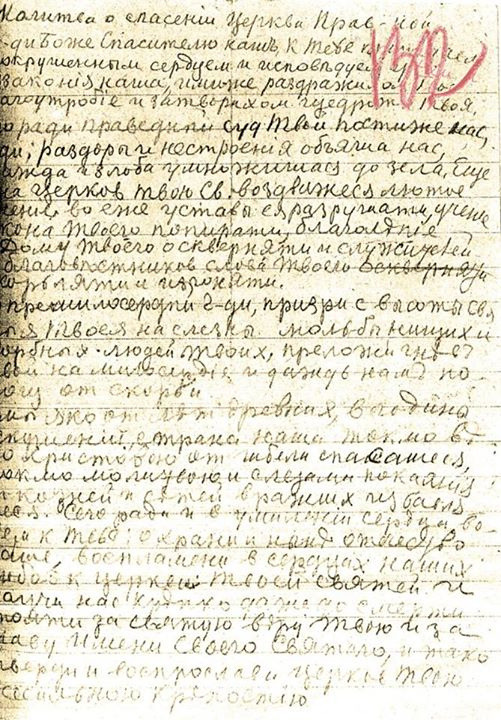 Молитва о спасеніи Церкви Прав-ной
-ди Боже Спасителю нашъ, к Тебе припадаем
окрушенным сердцем и исповѣдуем
законія наша, имиже раздражи
лагоутробіе и затворихом щедроты Твоя,
о ради праведный суд Твой постиже нас,
ди; раздоры и нестроения объяша нас,
ажда и злоба умножишася до зела, Еще
на церковь твою Св. воздвижеся лютое
ение, во еже уставы ея разрушати, учение
кона Твоего попирати, благолѣпіе
Дому Твоего осквернати и служителей
благовѣстников слова Твоего оскверняти
скорбляти и изгоняти.
премилосердый Г-ди, призри с высоты Свя
ыя Твоея на слезы мольбы нищих и
орбных людей Твоих, преложи гнѣв
вой на милосердіе и даждь намъ по
ощь от скорби
мы яко от лѣт древних, в годины
скушений, страна наша токмо
о Христовою от гибели спасашеся,
окмо молитвою и слезами покаяния
козней и сетей вражиих избавля
еся. Сего ради и в умилении сердца во
ем к Тебѣ: охрани и нынѣ отчество
наше, воспламени в сердцах наших
юбовь к церкви Твоей святей и
аучи нас даже до смерти
тояти за святую вѣру Твою и за
лаву Имени Своего Святаго, и тако
тверди и воспрослави Церковь Твою
сесильною крѣпостию
132